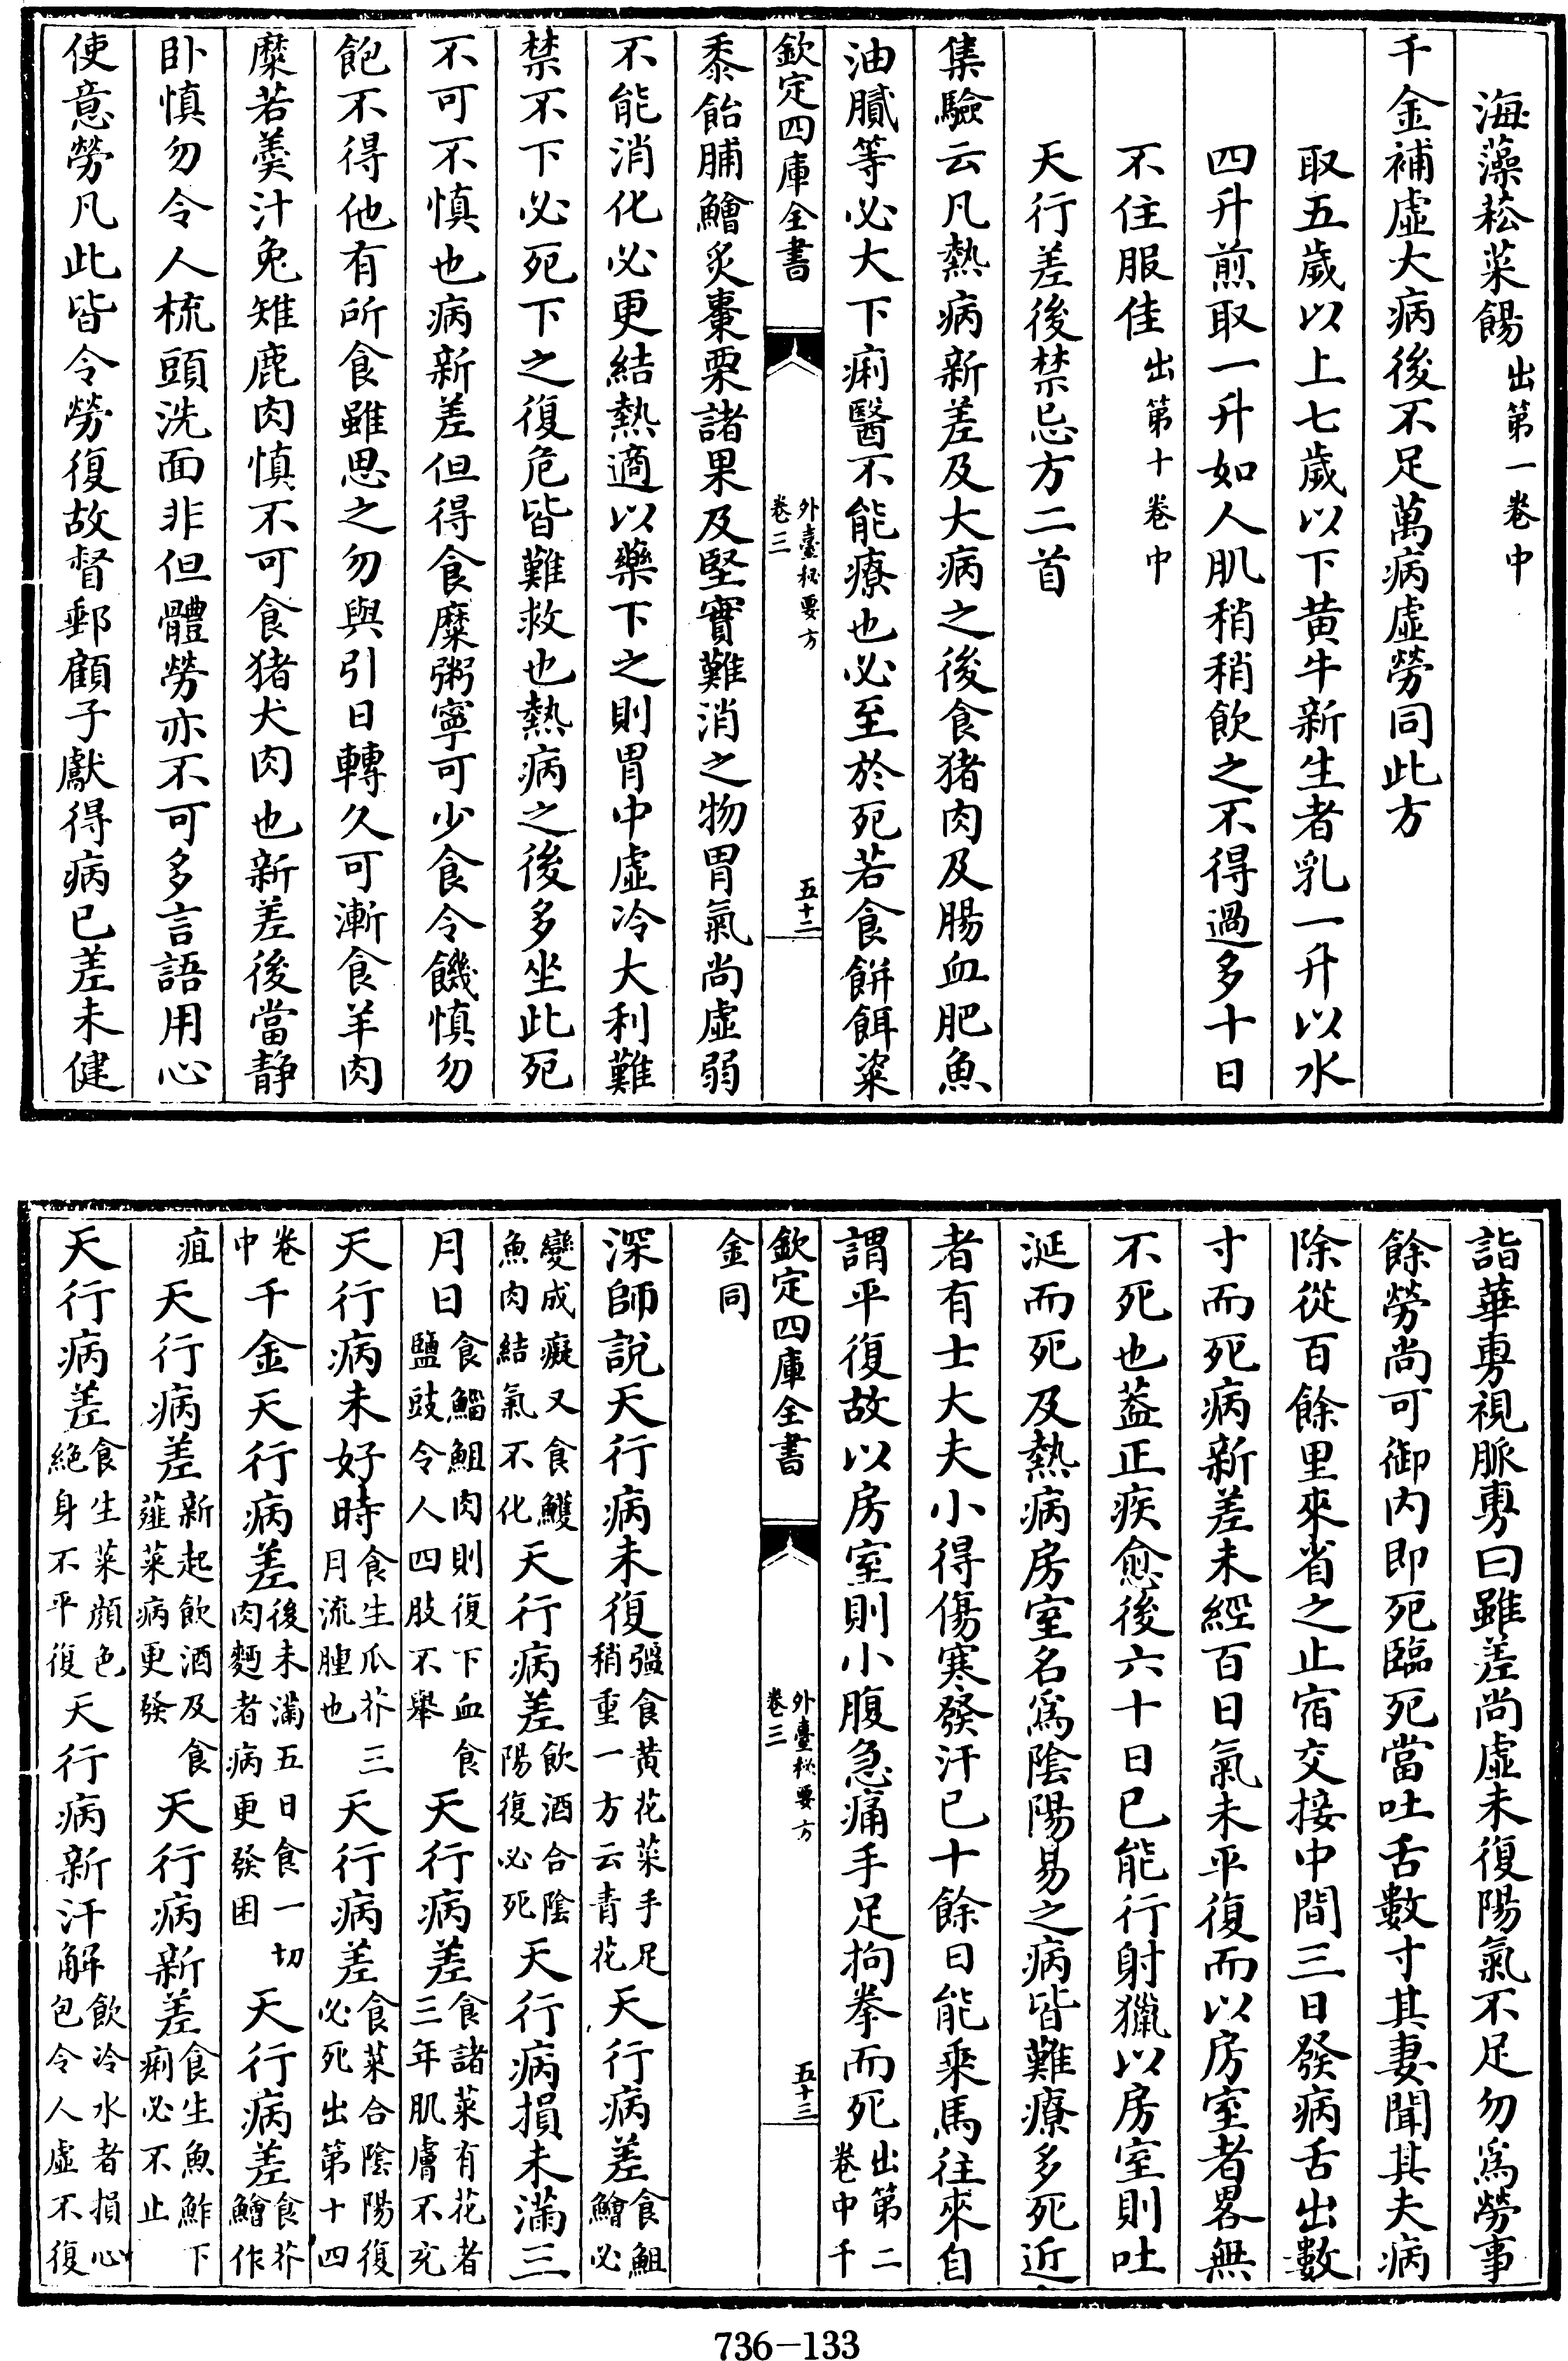 海藻菘菜餳出第一卷中
千金補虛大病後不足萬病虛勞同此方
取五歲以上七歲以下黄牛新生者乳一升以水
四升煎取一升如人肌稍稍飲之不得過多十日
不住服佳出第十卷中
天行差後禁忌方二首
集驗云凡熱病新差及大病之後食猪肉及腸血肥魚
油膩等必大下痢醫不能療也必至於死若食餅餌粢
欽定四庫全書
外臺秘要方
卷三
五十二
黍飴脯鱠炙棗栗諸果及堅實難消之物胃氣尚虛弱
不能消化必更結熱適以藥下之則胃中虛冷大利難
禁不下必死下之復危皆難救也熱病之後多坐此死
不可不慎也病新差但得食糜粥寧可少食令饑慎勿
飽不得他有所食雖思之勿與引日轉久可漸食羊肉
糜若羮汁兔雉鹿肉慎不可食猪犬肉也新差後當静
卧慎勿令人梳頭洗面非但體勞亦不可多言語用心
使意勞凡此皆令勞復故督郵顧子獻得病已差未健
詣華旉視脈旉曰雖差尚虛未復陽氣不足勿爲勞事
餘勞尚可御内即死臨死當吐舌數寸其妻聞其夫病
除從百餘里來省之止宿交接中間三日發病舌出數
寸而死病新差未經百日氣未平復而以房室者畧無
不死也葢正疾愈後六十日已能行射獵以房室則吐
涎而死及熱病房室名爲陰陽易之病皆難療多死近
者有士大夫小得傷寒發汗已十餘日能乘馬往來自
謂平復故以房室則小腹急痛手足拘拳而死出第二卷中千
欽定四庫全書
外臺秘要方
卷三
五十三
金同
深師説天行病未復强食黄花菜手足稍重一方云青花天行病差食䱉鱠必
變成癡又食鱯魚肉結氣不化天行病差飲酒合陰陽復必死天行病損未滿三
月日食鯔䱉肉則復下血食鹽豉令人四肢不舉天行病差食諸菜有花者三年肌膚不充
天行病未好時食生瓜芥三月流腫也天行病差食菜合陰陽復必死出第十四
卷中千金天行病差後未滿五日食一切肉麵者病更發困天行病差食芥鱠作
疽天行病差新起飲酒及食薤菜病更發天行病新差食生魚鮓下痢必不止
天行病差食生菜顔色絶身不平復天行病新汗解飲冷水者損心包令人虛不復
736-133